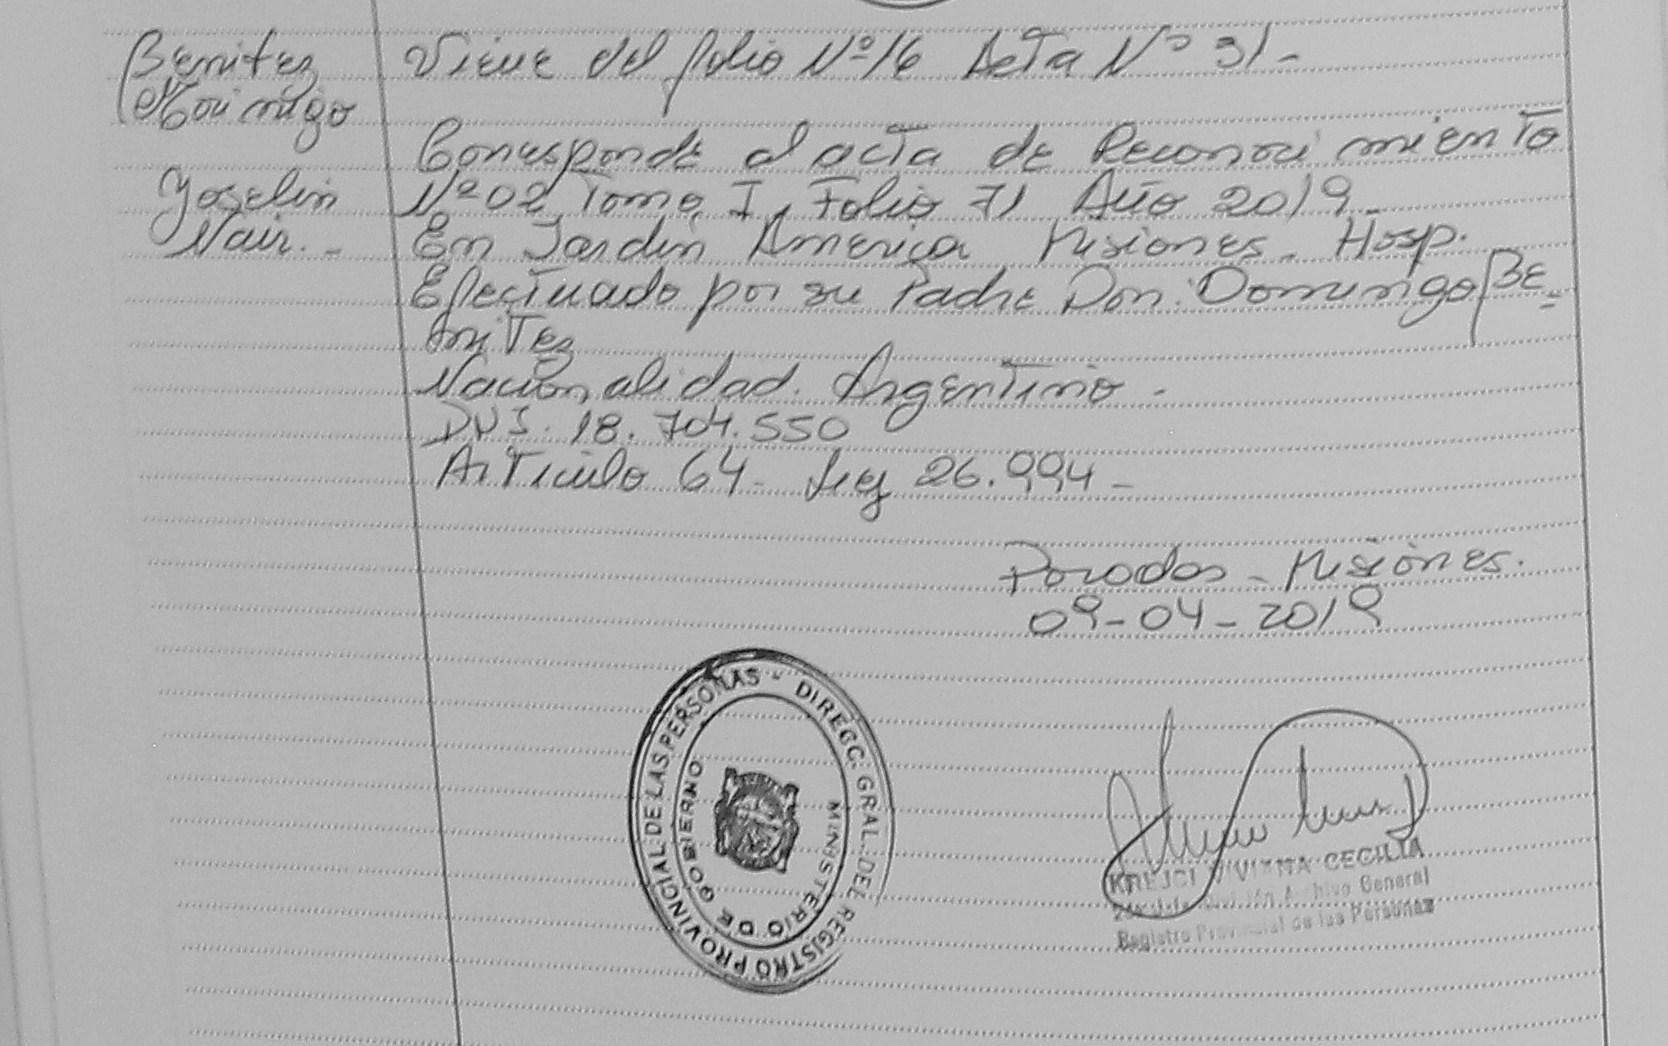 Benitez
Moringo
Joselin
Nair. -
Viene del folio Nº 16 Acta Nº 31 -
Corresponde al acta de Reconocimiento
Nº 02 Tomo I, Folio 71 Año 2019 -
En Jardin America Misiones - Hosp.
Efectuado por su Padre Don: Domingo BE=
nitez
Nacionalidad. Argentino -
DNI. 18.704.550
Articulo 64 - Ley 26.994 -
Posadas - Misiones.
09-04-2019
DIRECC. GRAL. DEL REGISTRO PROVINCIAL DE LAS PERSONAS -
MINISTERIO DE GOBIERNO
KREJCI VIVIANA CECILIA
Archivo General
Registro Provincial de las Personas